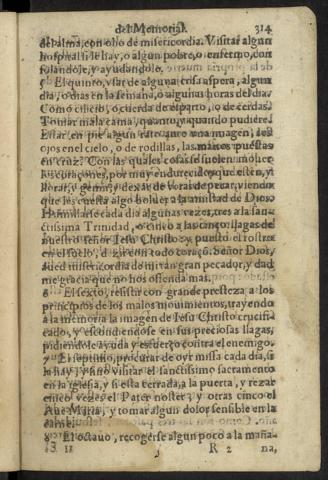 del Memorial. 314
del alma, con olio de misericordia. Visitar algun
hospital si le hay, o algun pobre, o enfermo, con
solandole, y ayudandole.
5 El quinto, vsar de alguna cosa aspera, algun
dia, o mas en la semana, o algunas horas del dia.
Como cilicio, o cuerda de esparto, o de cerdas.
Tomar mala cama, quanto, y quando pudiere.
Estar en pie algun rato ante vna imagen, los
ojos en el cielo, o de rodillas, las manos puestas
en cruz. Con las quales cosas se suelen moller
los coraçones, por muy endurecidos que esten, y
llorar, y gemir, y dexar de veras de pecar, viendo
que les cuesta algo boluer a la amistad de Dios.
Humillarse cada dia algunas vezes, tres a la san-
ctissima Trinidad, o cinco a las cinco llagas de
nuestro señor Iesu Christo: y puesto el rostro
en el suelo, dezir con todo coraçõ. Señor Dios,
aued misericordia de mi tan gran pecador, y dad
me gracia que no os ofenda mas.
6 El sexto, resistir con grande presteza a los
principios de los malos mouimientos, trayendo
a la memoria la imagen de Iesu Christo crucifi-
cado, y escondiendose en sus preciosas llagas,
pidiendole ayuda y esfuerço contra el enemigo.
7 El septimo, procurar de oyr missa cada dia, si
la hay, y sino visitar el sanctissimo sacramento
en la iglesia, y si esta cerrada, a la puerta, y rezar
cinco vezes el Pater noster, y otras cinco el
Aue Maria, y tomar algun dolor sensible en la
carne.
8 El octauo, recogerse algun poco a la maña-
S. 11 R 2 na,